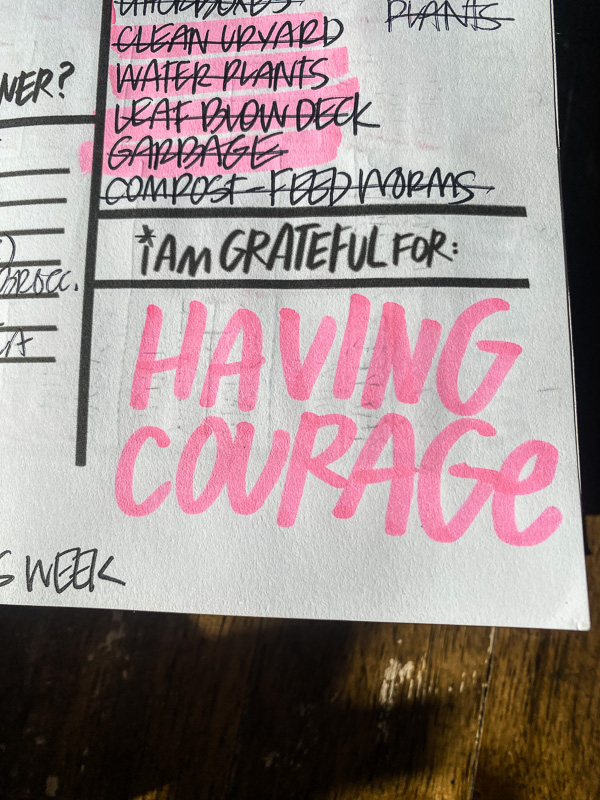 PLANTS
CLEAN UP YARD
WATER PLANTS
LEAF BLOW DECK
GARBAGE
COMPOST - FEED WORMS
NER?
BROCC.
*i AM GRATEFUL FOR:
HAVING
COURAGE
WEEK